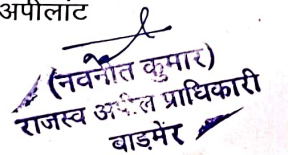 अपीलांट
(नवनीत कुमार)
राजस्व अपील प्राधिकारी
बाड़मेर